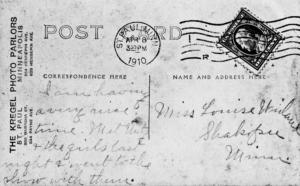 POST CARD
ST. PAUL, MINN.
APR 8
3 30 PM
1910
THE KREGEL PHOTO PARLORS
ST. PAUL
MINNEAPOLIS
CORRESPONDENCE HERE
NAME AND ADDRESS HERE
I am having
a very nice
time. Met
& the girls last
night & went to the
show with them.
Miss Louise
Shakopee
Minn